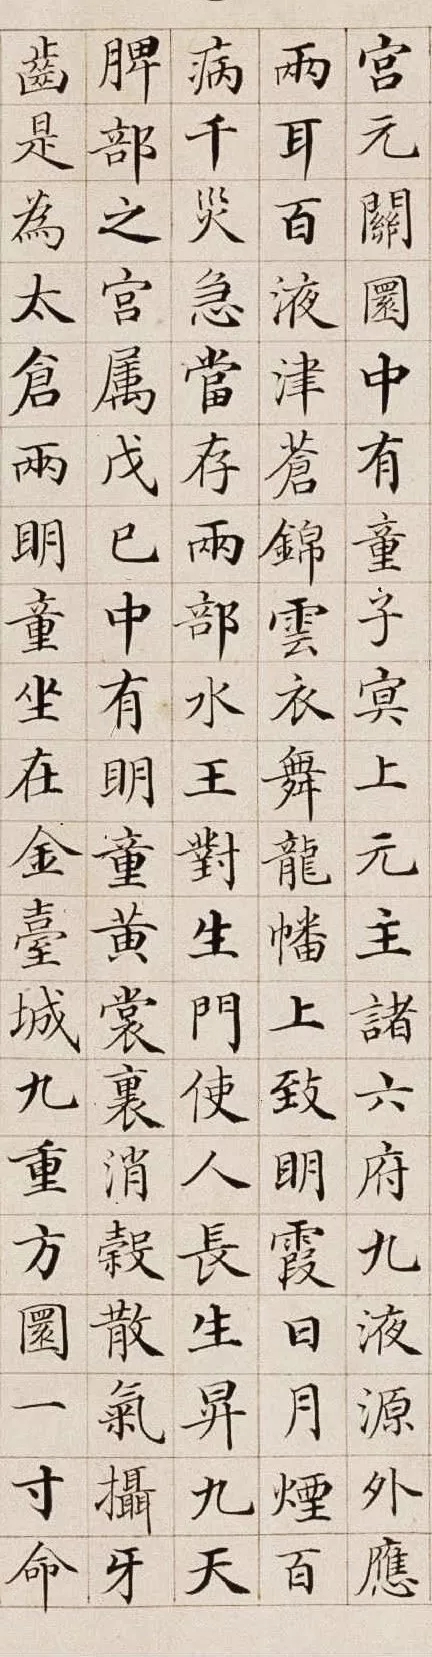 宮元關圜中有童子冥上元主諸六府九液源外應
兩耳百液津蒼錦雲衣舞龍幡上致明霞日月煙百
病千災急當存兩部水王對生門使人長生昇九天
脾部之宮属戊巳中有明童黃裳裏消穀散氣攝牙
齒是為太倉兩明童坐在金臺城九重方圜一寸命